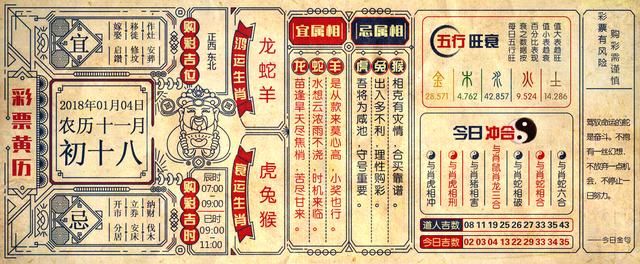 彩票黄历
宜
作灶 安葬
移徙 修坟
嫁娶 启鑽
2018年01月04日
农历十一月
初十八
忌
纳财 伐木
立券 安床
开市 分居
购彩吉位
正西 东北
购彩吉时
辰时
07:00
09:00
巳时
09:00
11:00
鸿运生肖
龙蛇羊
衰运生肖
虎兔猴
宜属相
忌属相
龙
蛇
羊
苗逢旱天尽焦梢 苦尽甘来。
水想云浓雨不浇 时机来临。
是从款来莫心高 小奖也行。
虎
兔
猴
吾将为咸池 守号重要。
出入多不利 理性购彩。
相克有灾情 合买靠谱。
五行 旺衰
值大表趋旺
值小表趋衰
百分比表现
衰之数据按
每日五行旺
金 木 水 火 土
28.571 4.762 42.857 9.524 14.286
今日 冲合
与肖虎相冲
与肖虎相刑
与肖猪相害
与肖蛇相破
与肖蛇相合
与肖蛇六合
与肖鼠肖龙三合
道人吉数 08 11 19 25 26 27 33 35 43
今日吉数 02 03 04 13 22 29 33 34 35
购彩需谨慎
彩票有风险
驾驭命运的舵
是奋斗。不抱
有一丝幻想,
不放弃一点机
会,不停止一
日努力。
——今日金句